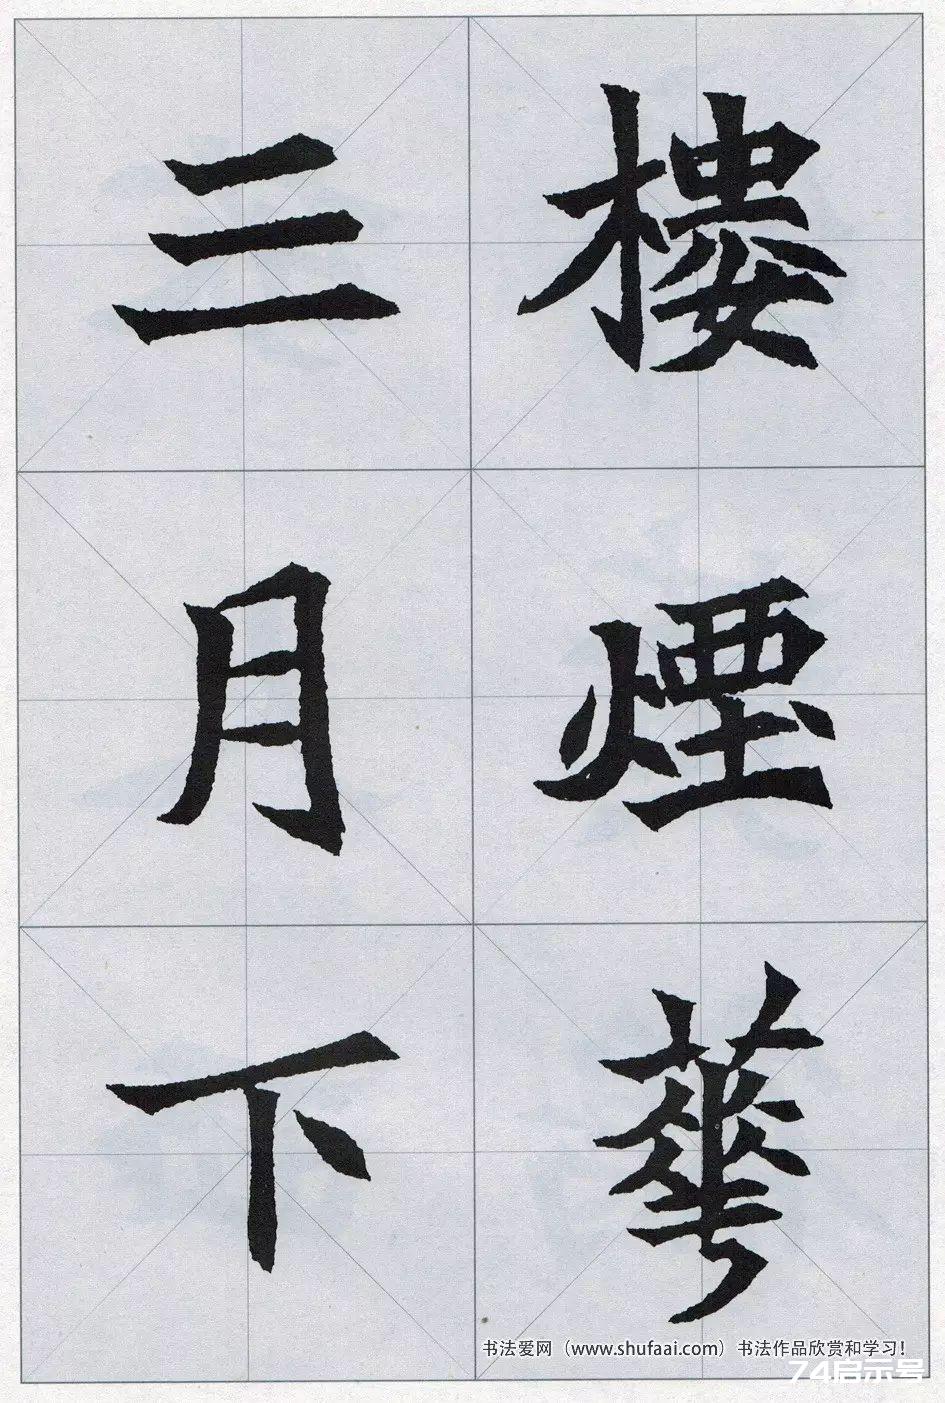 樓煙華
三月下
书法爱网（www.shufaai.com）书法作品欣赏和学习！
74启示号